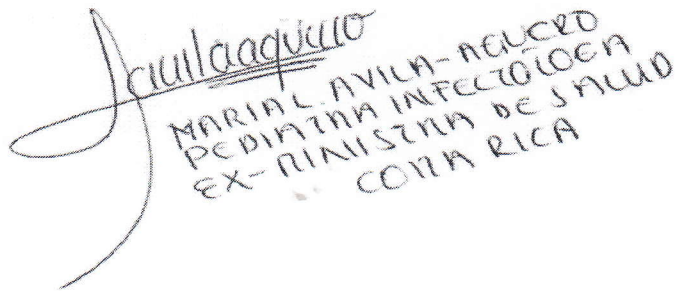 MARIA L. AVILA-AGUERO
PEDIATRA INFECTOLOGA
EX-MINISTRA DE SALUD
COSTA RICA